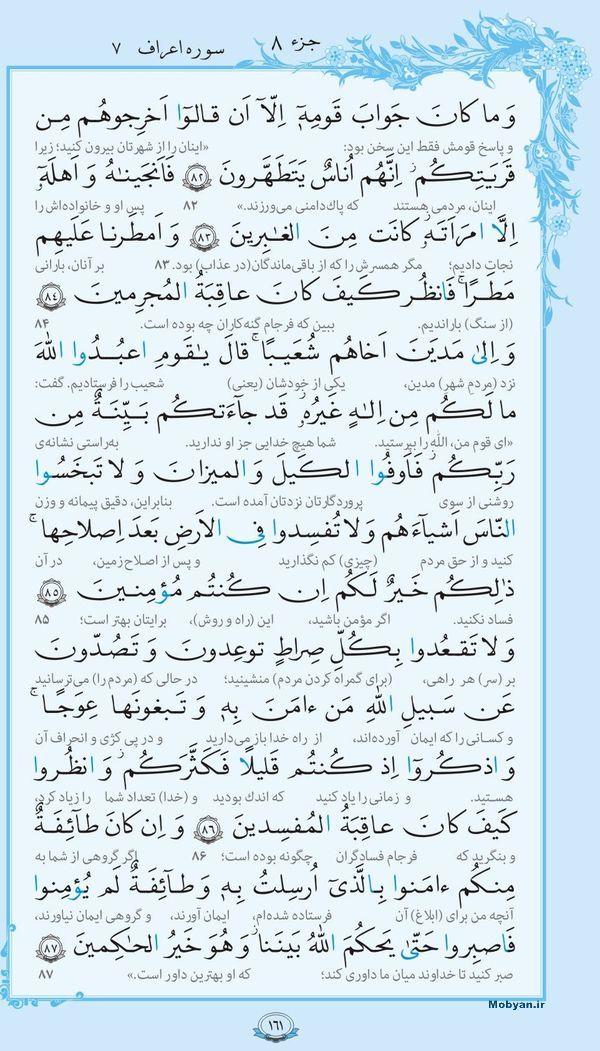 جزء ۸
سوره اعراف ۷
وَ ما کانَ جَوابَ قَومِهٖٓ اِلّآ اَن قالوٓا اَخرِجوهُم مِن
و پاسخ قومش فقط این سخن بود: «اینان را از شهرتان بیرون کنید؛ زیرا
قَریَتِکُم ۖ اِنَّهُم اُناسٌ یَتَطَهَّرونَ ﴿۸۲﴾ فَاَنجَینٰهُ وَ اَهلَهٗٓ
اینان، مردمی هستند که پاک‌دامنی می‌ورزند.» ۸۲ پس او و خانواده‌اش را
اِلَّا امرَاَتَهٗ کانَت مِنَ الغٰبِرینَ ﴿۸۳﴾ وَ اَمطَرنا عَلَیهِم
نجات دادیم؛ مگر همسرش را که از باقی‌ماندگان(در عذاب) بود. ۸۳ بر آنان، بارانی
مَطَرًا ۖ فَانظُر کَیفَ کانَ عاقِبَةُ المُجرِمینَ ﴿۸۴﴾
(از سنگ) باراندیم. ببین که فرجام گنه‌کاران چه بوده است. ۸۴
وَ اِلیٰ مَدیَنَ اَخاهُم شُعَیبًا ۗ قالَ یٰقَومِ اعبُدُوا اللّٰهَ
نزد (مردمِ شهرِ) مدین، یکی از خودشان (یعنی) شعیب را فرستادیم. گفت:
ما لَکُم مِن اِلٰهٍ غَیرُهٗ ۖ قَد جآءَتکُم بَیِّنَةٌ مِن
«ای قوم من، اللّٰه را بپرستید. شما هیچ خدایی جز او ندارید. به‌راستی نشانه‌ی
رَبِّکُم ۖ فَاَوفُوا الکَیلَ وَ المیزانَ وَ لا تَبخَسُوا
روشنی از سوی پروردگارتان نزدتان آمده است. بنابراین، دقیق پیمانه و وزن
النّاسَ اَشیآءَهُم وَ لا تُفسِدوا فِی الاَرضِ بَعدَ اِصلاحِها ۚ
کنید و از حق مردم (چیزی) کم نگذارید و پس از اصلاح زمین، در آن
ذٰلِکُم خَیرٌ لَکُم اِن کُنتُم مُؤمِنینَ ﴿۸۵﴾
فساد نکنید. اگر مؤمن باشید، این (راه و روش)، برایتان بهتر است؛ ۸۵
وَ لا تَقعُدوا بِکُلِّ صِراطٍ توعِدونَ وَ تَصُدّونَ
بر (سرِ) هر راهی، (برای گمراه کردن مردم) منشینید؛ در حالی که (مردم را) می‌ترسانید
عَن سَبیلِ اللّٰهِ مَن ءامَنَ بِهٖ وَ تَبغونَها عِوَجًا ۚ
و کسانی را که ایمان آورده‌اند، از راه خدا باز می‌دارید و در پی کژی و انحراف آن
وَ اذکُروٓا اِذ کُنتُم قَلیلًا فَکَثَّرَکُم ۖ وَ انظُروا
هستید. و زمانی را یاد کنید که اندک بودید و (خدا) تعداد شما را زیاد کرد،
کَیفَ کانَ عاقِبَةُ المُفسِدینَ ﴿۸۶﴾ وَ اِن کانَ طآئِفَةٌ
و بنگرید که فرجام فسادگران چگونه بوده است؛ ۸۶ اگر گروهی از شما به
مِنکُم ءامَنوا بِالَّذیٓ اُرسِلتُ بِهٖ وَ طآئِفَةٌ لَم یُؤمِنوا
آنچه من برای (ابلاغ) آن فرستاده شده‌ام، ایمان آورند، و گروهی ایمان نیاورند،
فَاصبِروا حَتّیٰ یَحکُمَ اللّٰهُ بَینَنا ۚ وَ هُوَ خَیرُ الحٰکِمینَ ﴿۸۷﴾
صبر کنید تا خداوند میان ما داوری کند؛ که او بهترین داور است.» ۸۷
Mobyan.ir
۱۶۱